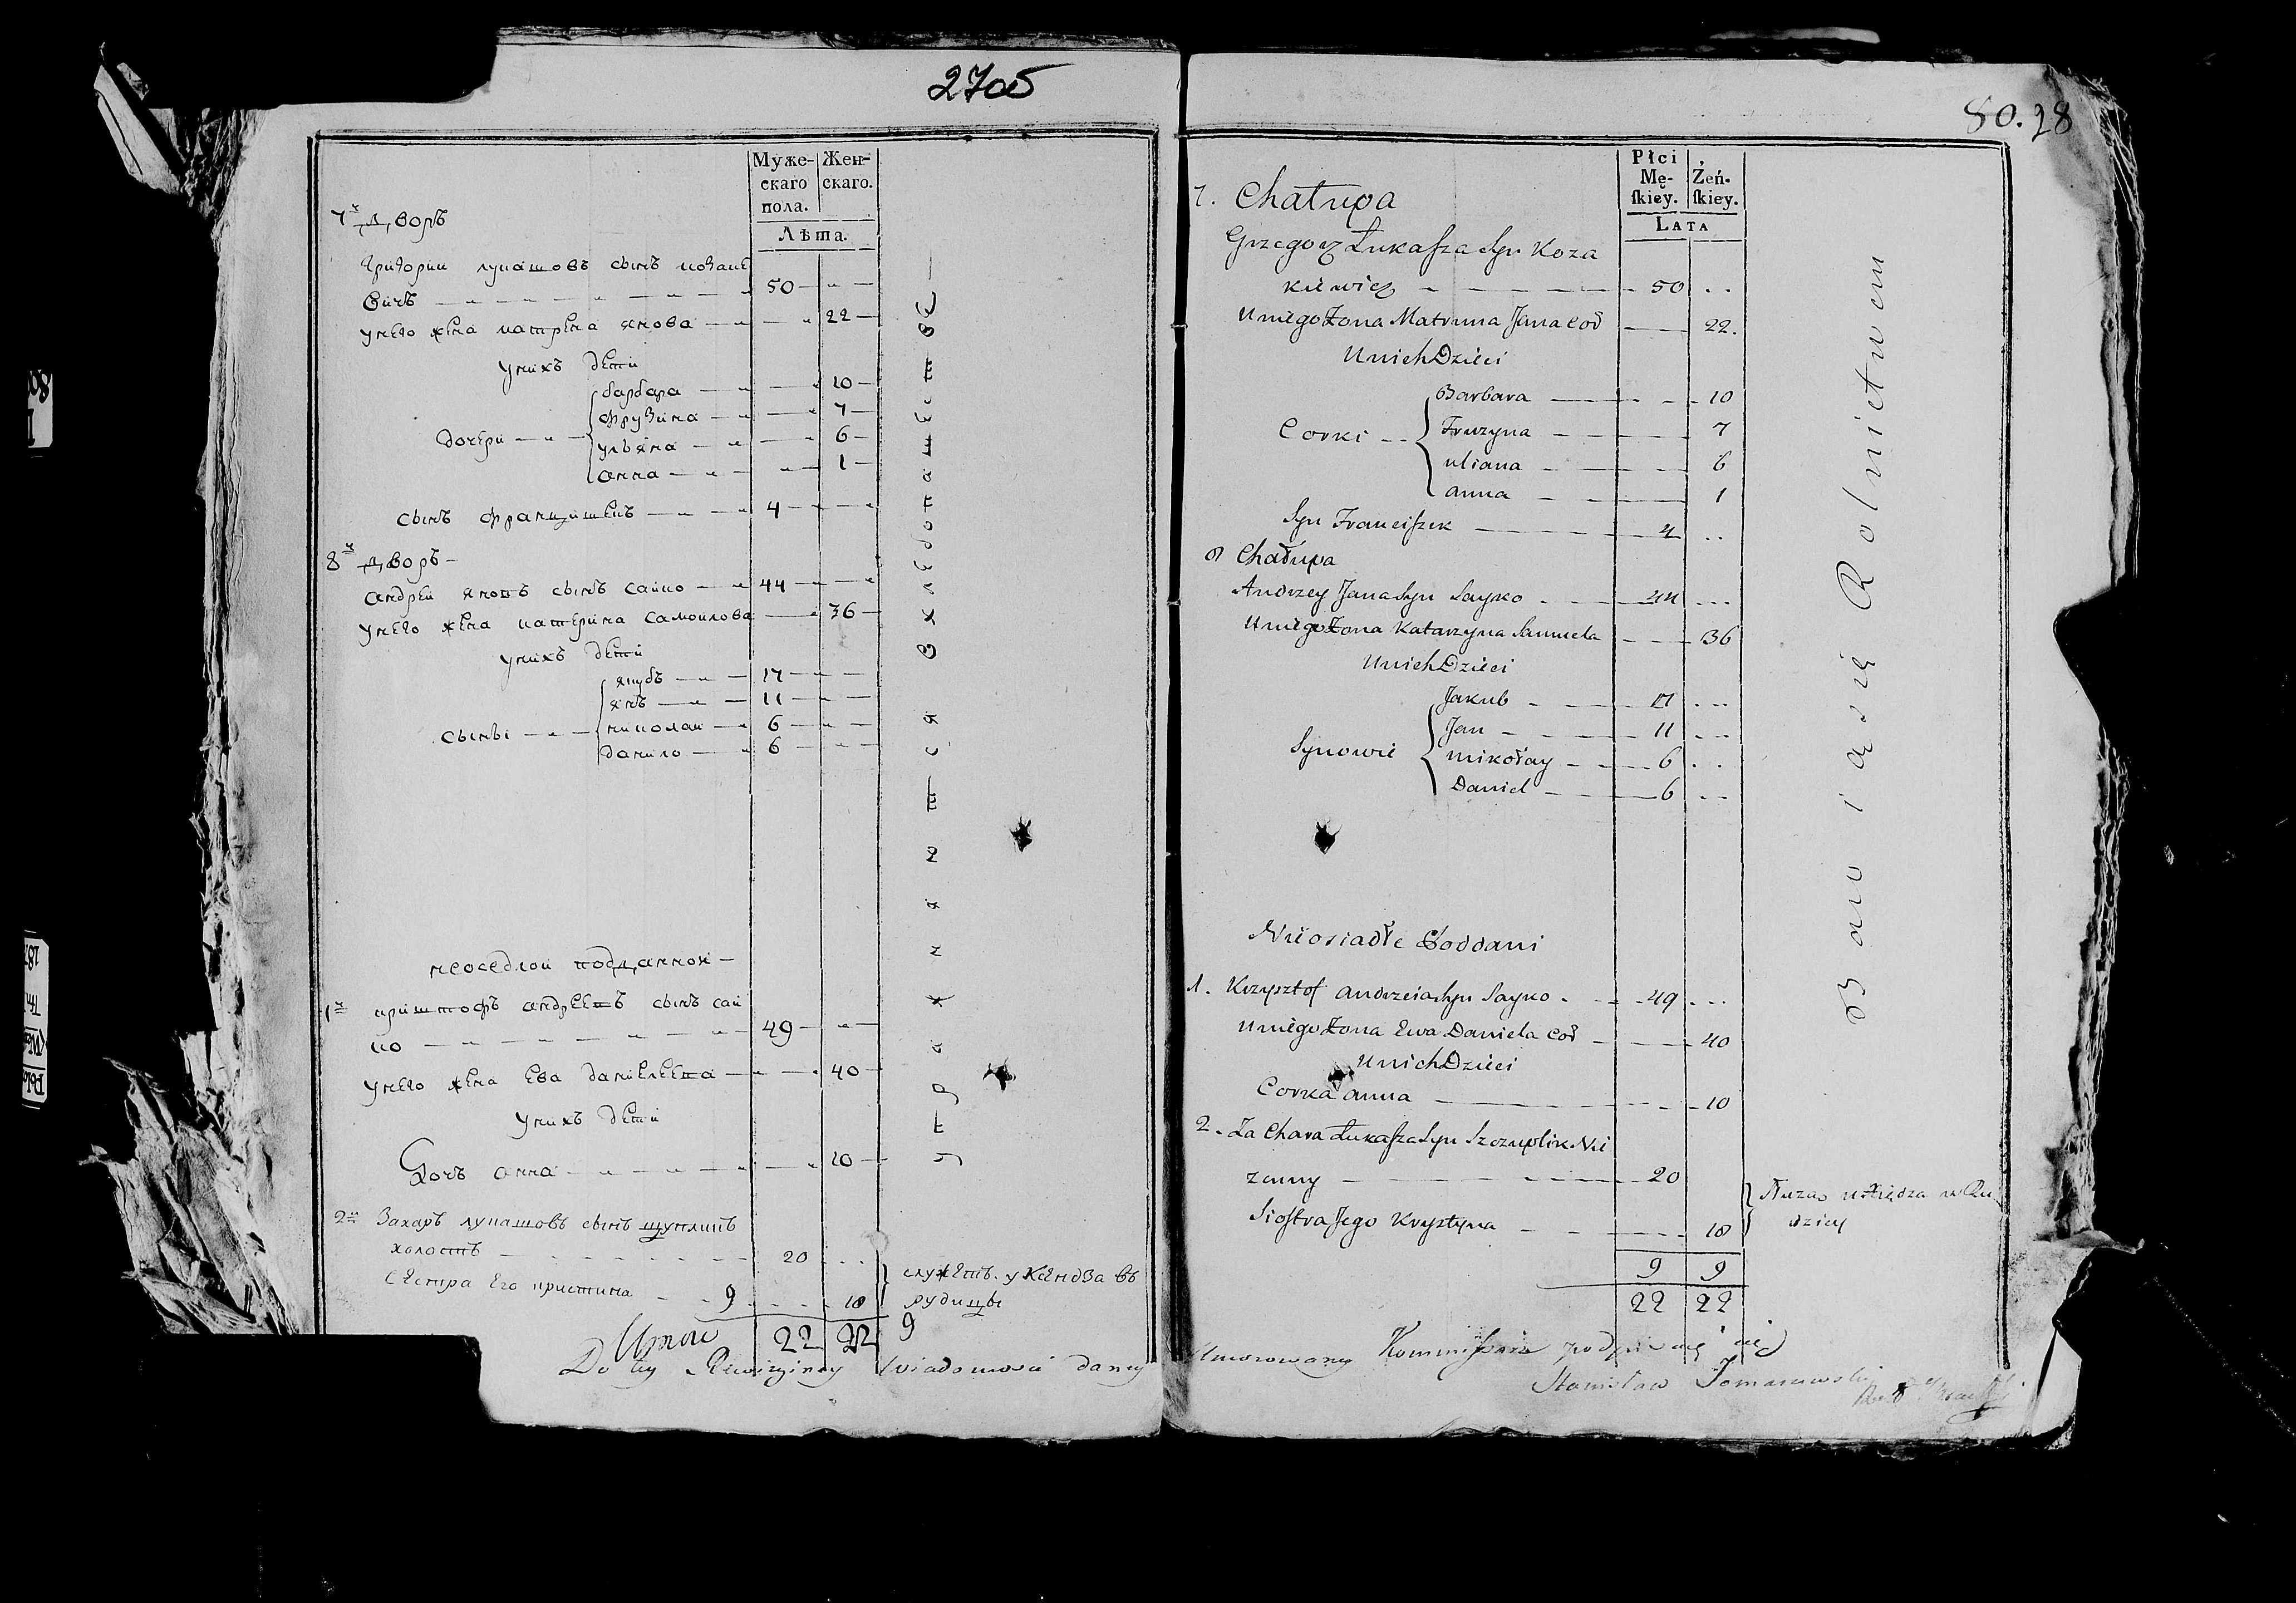 27об
Муже-
скаго
пола.
Жен-
скаго.
Лѣта.
7й дворъ
Григории лукашовъ сынъ козаке
вичъ 50
унего жена матрена янова 22
унихъ дети
дочери
барбара 10
фрузина 7
ульяна 6
анна 1
сынъ францишекъ 4
8й дворъ
андреи яновъ сынъ саико 44
унего жена катерина самоилова 36
унихъ дети
сыны
якубъ 17
янъ 11
николаи 6
данило 6
неоседлои подданной
1й криштофъ андреевъ сынъ саи
ко 49
унего жена ева даниелева 40
унихъ дети
Дочь анна 10
2й Захаръ лукашовъ сынъ щупликъ
холостъ 20
сестра его кристина 18
служетъ уксендза въ
рудицы
9 9
Итого 22 22
упражняятся хлебопашеством
Do tey Rewizyiney Wiadomosci dany
80. 28
Płci
Mę-
ſkiey.
Żeń-
ſkiey.
LATA
7. Chałupa
Grzegorz Łukaſza Syn Koza
kiewicz 50
Uniego Żona Matruna Jana Cod 22.
Unich Dzieci
Corki
Barbara 10
Fruzyna 7
uliana 6
anna 1
Syn Franciſzek 4
8 Chałupa
Andrzey Jana Syn Sayko 44
Uniego Żona Katarzyna Samuela 36
Unich Dzieci
Synowie
Jakub 17
Jan 11
mikołay 6
Daniel 6
Nieosiadłe Poddani
1. Krzysztof andrzeia Syn Sayko 49
Uniego Żona Ewa Daniela Cod 40
Unich Dzieci
Corka anna 10
2. Zachara Łukaſza Syn Szczuplik Nie
zenny 20
Sioſtra Jego Krystyna 18
Służą u Xiędza w Ru
dzicy
9 9
22 22
Bawią się Rolnictwem
Umocowany Kommiſsarz podpisuię się
Stanisław Tomaszewski